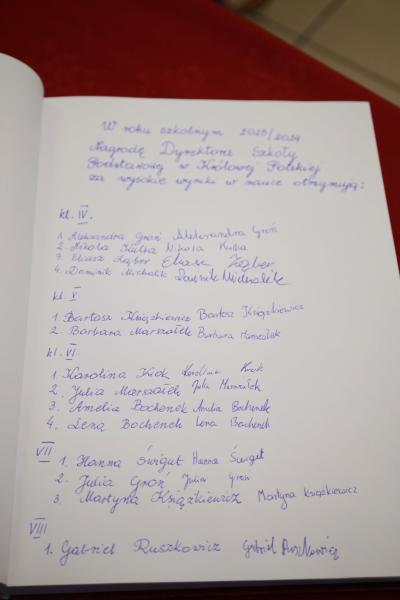 W roku szkolnym 2023/2024
Nagrodę Dyrektora Szkoły
Podstawowej w Królowej Polskiej
za wysokie wyniki w nauce otrzymują:
kl. IV.
1. Aleksandra Groń Aleksandra Groń
2. Nikola Kulka Nikola Kulka
3. Eliasz Ząber Eliasz Ząber
4. Dominik Michalik Dominik Michalik
kl. V
1. Bartosz Książkiewicz Bartosz Książkiewicz
2. Barbara Marszałek Barbara Marszałek
kl. VI
1. Karolina Karolina
2. Julia Marszałek Julia Marszałek
3. Amelia Bochenek Amelia Bochenek
4. Lena Bochenek Lena Bochenek
VII
1. Hanna Świgut Hanna Świgut
2. Julia Groń Julia Groń
3. Martyna Książkiewicz Martyna Książkiewicz
VIII
1. Gabriel Ruszkowicz Gabriel Ruszkowicz